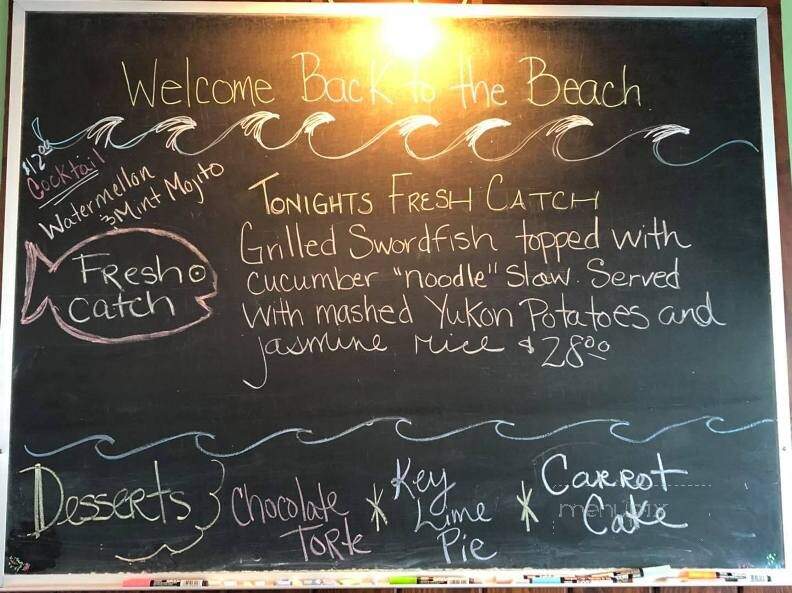 Welcome Back to the Beach
$12.00
Cocktail
Watermellon
& Mint Mojito
Fresh
Catch
Tonights Fresh Catch
Grilled Swordfish topped with
cucumber "noodle" Slaw. Served
with mashed Yukon Potatoes and
jasmine rice $28.00
Desserts } Chocolate Torte * Key Lime Pie * Carrot Cake
menupix